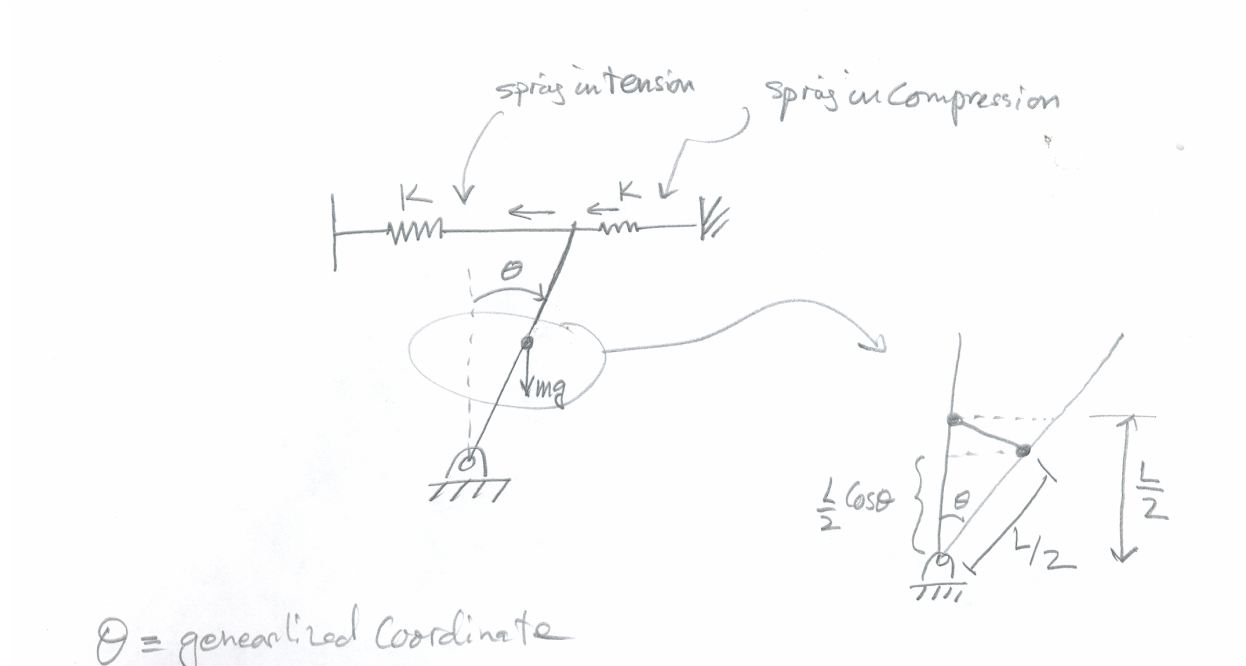 spring in tension
spring in compression
K
K
θ
mg
L/2 cosθ
θ
L/2
L/2
θ ≡ genearlized Coordinate